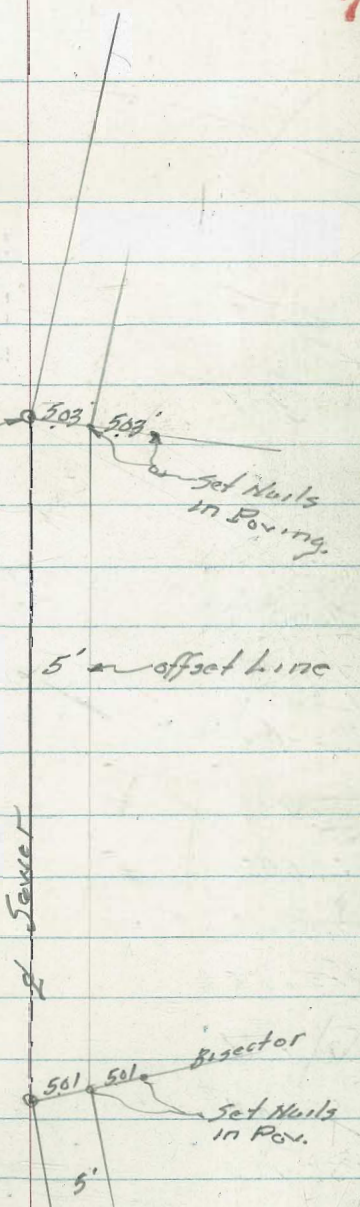 5.03' 5.03'
Set Nails
in Paving.
5' offset Line
℄ Sewer
Bisector
5.01 5.01
Set Nails
in Pav.
5'